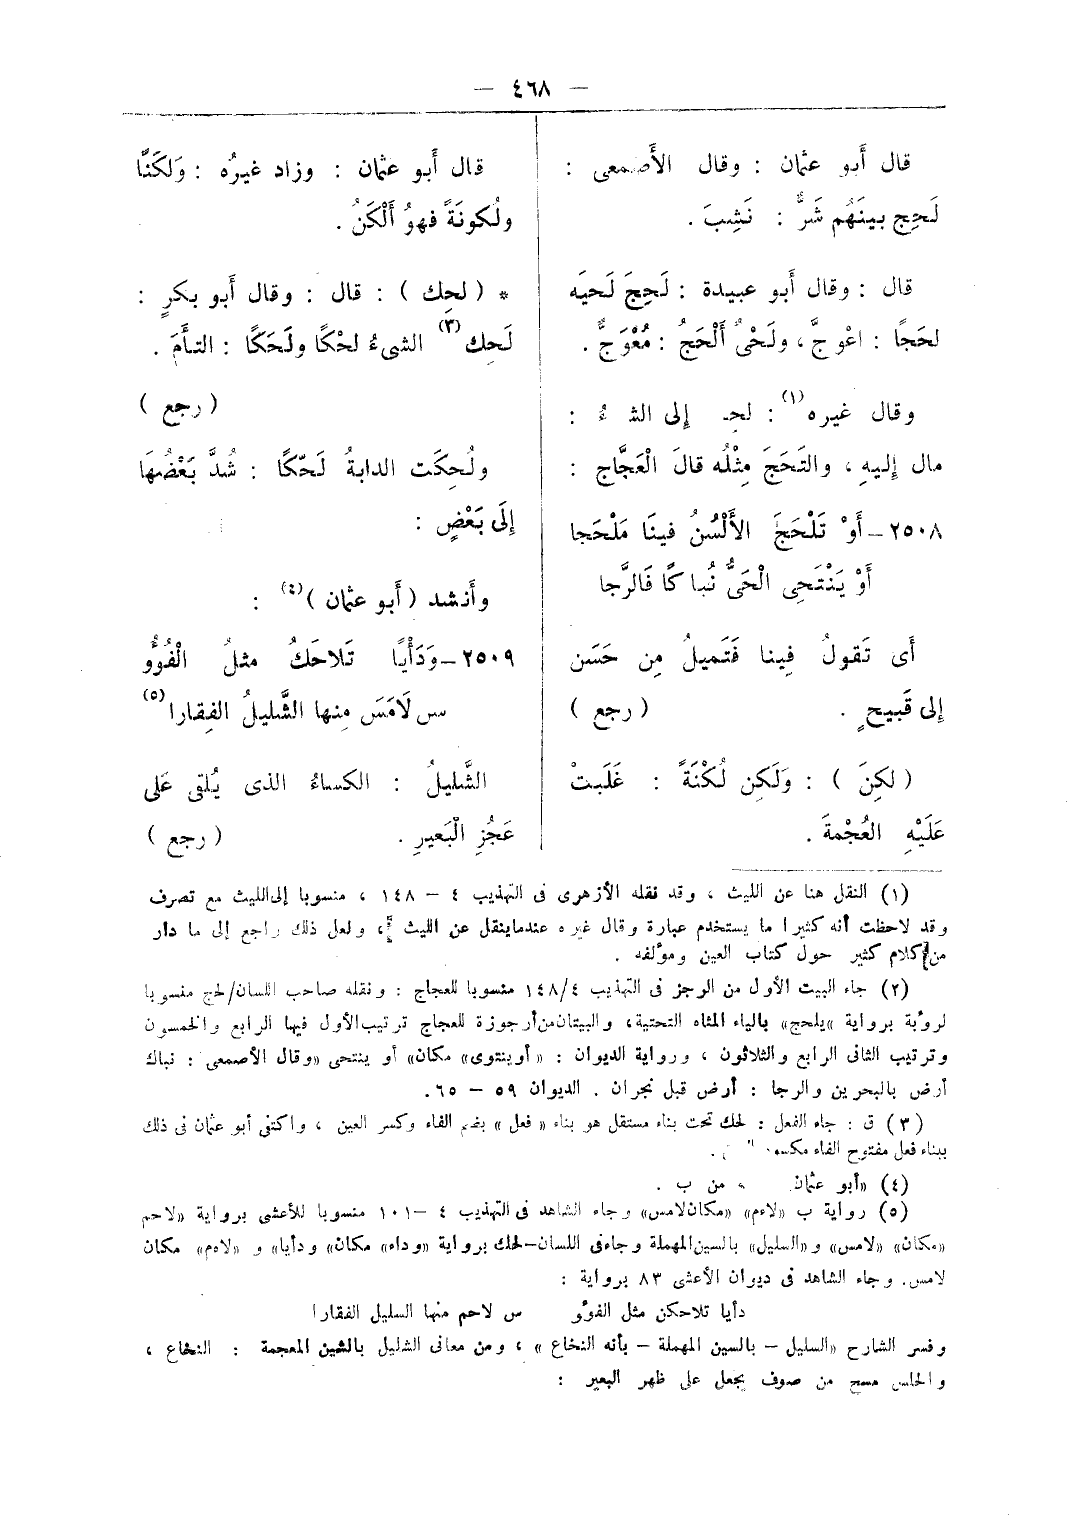 — ٤٦٨ —
قال أَبو عثمان : وقال الأَصمعى :
لَحِج بينَهُم شَرٌّ : نَشِبَ .
قال : وقال أَبو عبيدة : لَحِجَ لَحيَه
لحَجًا : اعْوجَّ ، ولَحْىٌ أَلْحَجُ : مُعْوَجٌّ .
وقال غيره (١) : إلى :
مال إِليهِ ، والتَحَجَ مِثْلُه قالَ الْعَجَّاج :
٢٥٠٨ – أَوْ تَلْحَجَ الأَلْسُنُ فينَا مَلْحَجا
أَوْ يَنْتَحِى الْحَىُّ نُباكًا فَالرَّجا
أى تَقولُ فِينا فَتَميلُ مِن حَسَن
إلى قَبيحٍ . ( رجع )
( لكِنَ ) : وَلَكِن لُكْنَةً : غَلَبتْ
عَلَيْهِ العُجْمةَ .
قال أَبو عثمان : وزاد غيرُه : وَلَكَنًّا
ولُكونَةً فهوُ أَلْكَنُ .
* ( لحِك ) : قال : وقال أَبو بكرٍ :
لَحِك (٣) الشىءُ لحْكًا ولَحَكًا : التأَمَ .
( رجع )
ولُحِكَت الدابةُ لَحْكًا : شُدَّ بَعْضُهَا
إِلَى بَعْضٍ :
وأَنشد ( أَبو عثمان ) (٤) :
٢٥٠٩ – وَدَأْيًا تَلاحَكُ مثلُ الْفُوُّو
س لَامَسَ مِنها الشَّليلُ الفِقارا (٥)
الشَّليلُ : الكساءُ الذى يُلقى عَلى
عَجُزِ الْبَعيرِ . ( رجع )
(١) النقل هنا عن الليث ، وقد نقله الأزهرى فى التهذيب ٤ – ١٤٨ ، منسوبا إلى الليث مع تصرف
وقد لاحظت أنه كثيرا ما يستخدم عبارة وقال غيره عندما ينقل عن الليث ، ولعل ذلك راجع إلى ما دار
من كلام كثير حول كتاب العين ومؤلفه .
(٢) جاء البيت الأول من الرجز فى التهذيب ١٤٨/٤ منسوبا للعجاج : ونقله صاحب اللسان/لحج منسوبا
لرؤبة برواية «يلحج» بالياء المثناه التحتية ، والبيتان من أرجوزة للعجاج ترتيب الأول فيها الرابع والخمسون
وترتيب الثانى الرابع والثلاثون ، ورواية الديوان : «أو ينتوى» مكان» أو ينتحى «وقال الأصمعى : نباك
أرض بالبحرين والرجا : أرض قبل نجران . الديوان ٥٩ – ٦٥ .
(٣) ق : جاء الفعل : لحك تحت بناء مستقل هو بناء « فعل » بضم الفاء وكسر العين ، واكتفى أبو عثمان فى ذلك
ببناء فعل مفتوح الفاء .
(٤) «أبو عثمان من ب .
(٥) رواية ب «لاءم» «مكان لامس» وجاء الشاهد فى التهذيب ٤ – ١٠١ منسوبا للأعشى برواية «لاحم
«مكان» «لامس» و«السليل» بالسين المهملة وجاء فى اللسان – لحك برواية «وداء» مكان» ودأيا» و «لاءم» مكان
لامس. وجاء الشاهد فى ديوان الأعشى ٨٣ برواية :
دأيا تلاحكن مثل الفؤو س لاحم منها السليل الفقارا
وفسر الشارح «السليل – بالسين المهملة – بأنه النخاع » ، ومن معانى الشليل بالشين المعجمة : النخاع ،
والحلس مسح من صوف يجعل على ظهر البعير :